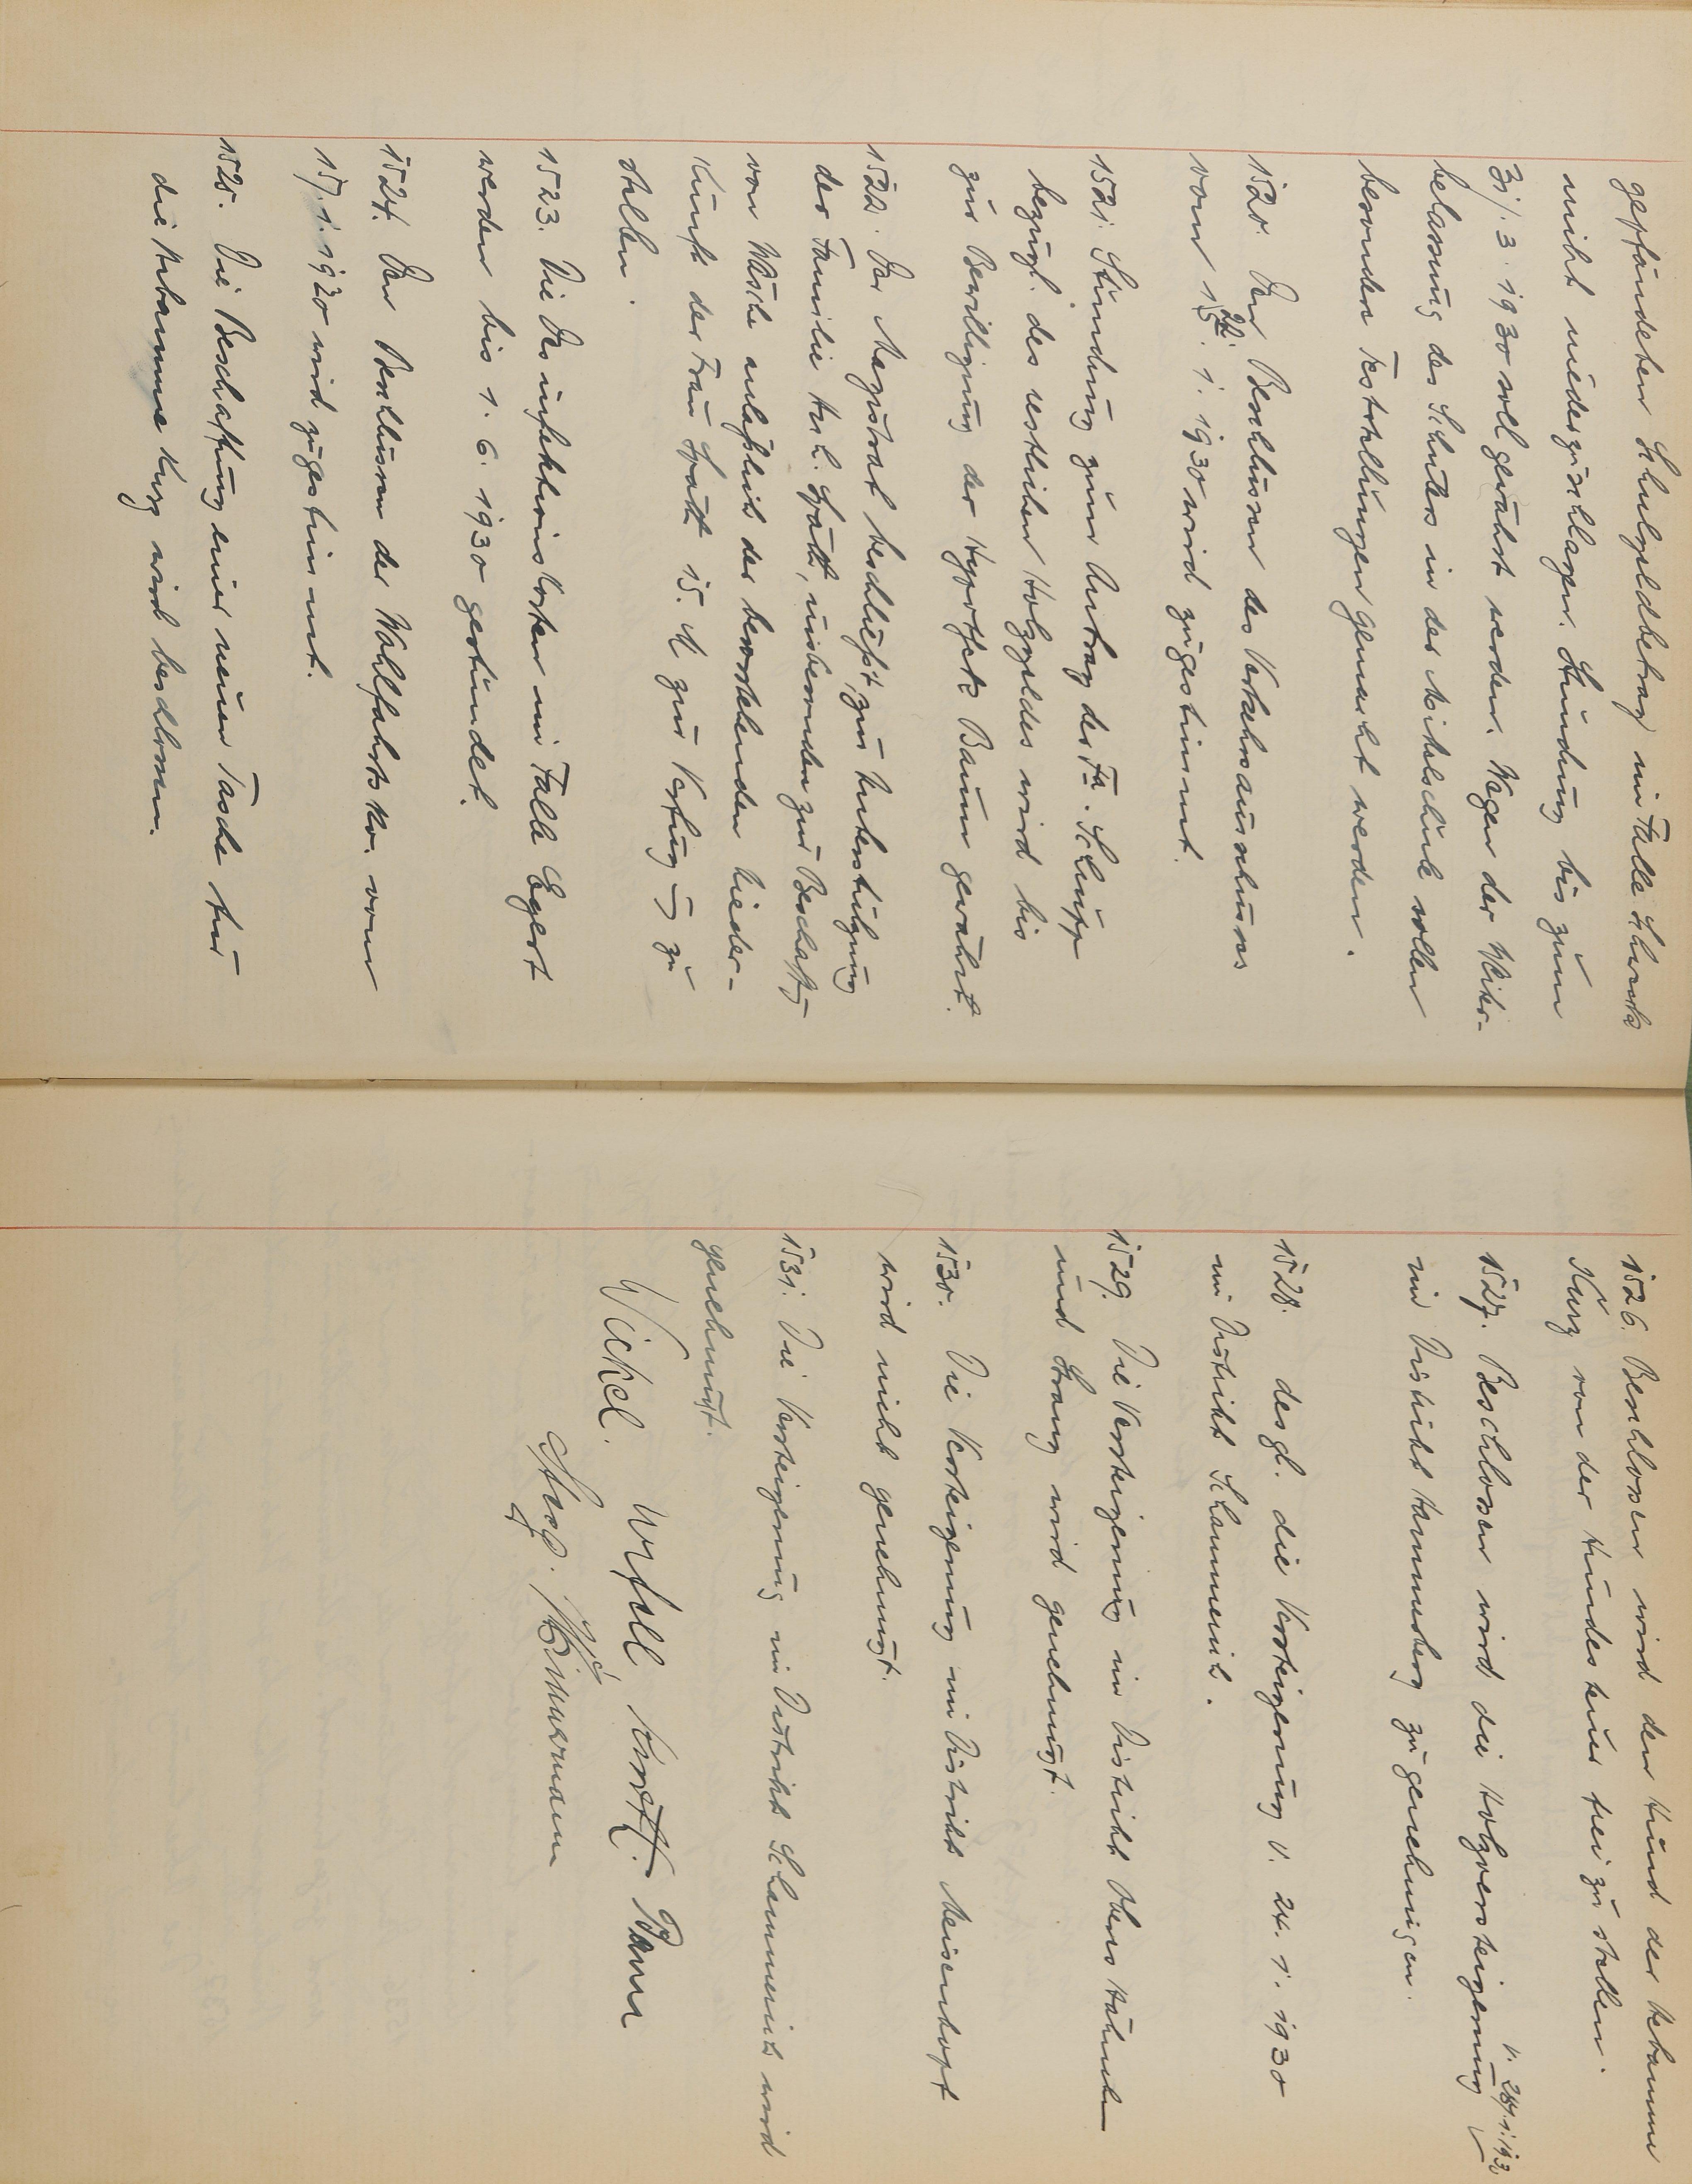 gepfändeten Schulgeldbetrag im Falle Schwenk
nicht niederzuschlagen. Stundung bis zum
31.3.1930 soll gewährt werden. Wegen der Weiter-
belassung des Schülers in der Mittelschule sollen
besondere Feststellungen gemacht werden.
1520. Den Beschlüssen des Verkehrsausschusses
vom 24. 1. 1930 wird zugestimmt.
1521. Stundung zum Antrag der Fa. Schlupp
bezügl. des restlichen Holzgeldes wird bis
zur Bewilligung der Hypothek Baum gewährt.
1522. Der Magistrat beschließt, zur Unterstützung
der Familie Spått, insbesondere zur Beschaffg
von Wäsche anläßlich der bevorstehenden Nieder-
kunft der Frau Spått 15. M zur Verfüg̅g zu
stellen.
1523. Die Desinfektionskosten im Falle Egert
werden bis 1. 6. 1930 gestundet.
1524. Den Beschlüssen der Wohlfahrtsko. vom
15/.1.1930 wird zugestimmt.
1525. Die Beschaffung einer neuen Tasche für
die Hebamme Kurz wird beschlossen.
1526. Beschlossen wird den Hund der Hebamme
Kurz von der Hundesteuer frei zu stellen.
1527. Beschlossen wird die Holzversteigerung
im Distrikt Hammelberg zu genehmigen.
1528. desgl. die Versteigerung v. 24. 1. 1930
im Distrikt Schammeich.
1529. Die Versteigerung im Distrikt
und Strang wird genehmigt.
1530. Die Versteigerung im Distrikt Meisenkopf
wird nicht genehmigt.
1531. Die Versteigerung im Distrikt Schammeich wird
genehmigt.
Wickel.